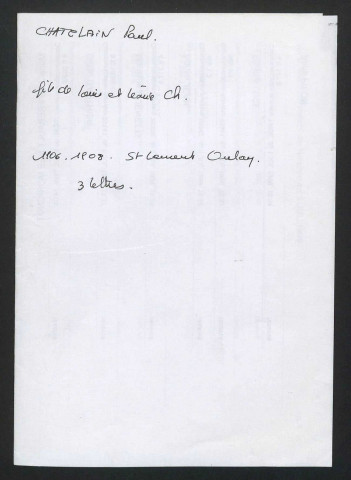 CHATELAIN Paul.
fils de Louis et Léonie Ch.
1906.1908. St Laurent Onlay.
3 lettres.